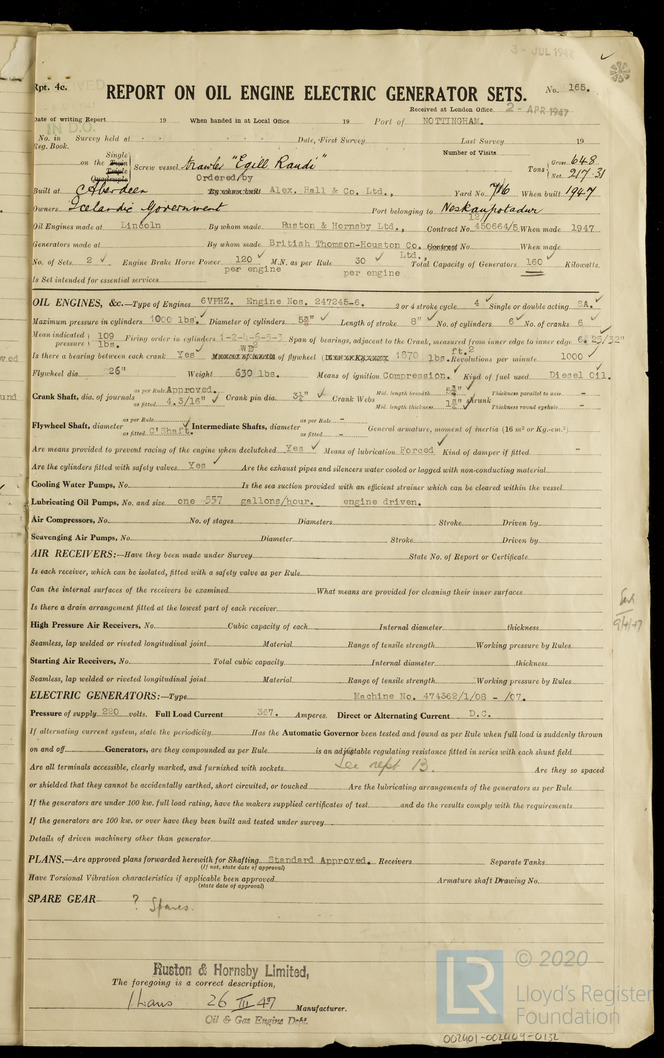 3 - JUL 194
Rpt. 4c.
REPORT ON OIL ENGINE ELECTRIC GENERATOR SETS.
No. 165.
Received at London Office 2 - APR 1947
IN D.O.
Date of writing Report 19 When handed in at Local Office 19 Port of NOTTINGHAM.
No. in Survey held at Date, First Survey Last Survey 19
Reg. Book.
Number of Visits
on the Single Twin Triple Quadruple Screw vessel trawler "Egill Raudi" Tons Gross 648 Net 217.31
Ordered by
Built at Aberdeen By whom built Alex. Hall & Co. Ltd., Yard No. 716 When built 1947
Owners Icelandic Government Port belonging to Neskaupstadur
Oil Engines made at Lincoln By whom made Ruston & Hornsby Ltd., Contract No. 450664/5 When made 1947
Generators made at By whom made British Thomson-Houston Co. Ltd. Contract No. When made
No. of Sets 2 Engine Brake Horse Power 120 per engine M.N. as per Rule 30 per engine Total Capacity of Generators 160 Kilowatts.
Is Set intended for essential services
OIL ENGINES, &c.—Type of Engines 6VPHZ. Engine Nos. 247245-6. 2 or 4 stroke cycle 4 Single or double acting SA.
Maximum pressure in cylinders 1000 lbs. Diameter of cylinders 5⅜" Length of stroke 8" No. of cylinders 6 No. of cranks 6
Mean indicated pressure 109 lbs. Firing order in cylinders 1-2-4-6-5-3 Span of bearings, adjacent to the Crank, measured from inner edge to inner edge 6. 25/32"
Is there a bearing between each crank Yes WR² of flywheel 1870 lbs. ft.2 Revolutions per minute 1000
Flywheel dia. 26" Weight 630 lbs. Means of ignition Compression. Kind of fuel used Diesel Oil.
Crank Shaft, dia. of journals as per Rule Approved. as fitted 4.3/16" Crank pin dia. 3½" Crank Webs Mid. length breadth 5¾" Mid. length thickness shrunk Thickness parallel to axis - Thickness round eyehole -
Flywheel Shaft, diameter as per Rule as fitted C'Shaft. Intermediate Shafts, diameter as per Rule - as fitted - General armature, moment of inertia (16 m² or Kg.-cm.²)
Are means provided to prevent racing of the engine when declutched Yes Means of lubrication Forced Kind of damper if fitted -
Are the cylinders fitted with safety valves Yes Are the exhaust pipes and silencers water cooled or lagged with non-conducting material
Cooling Water Pumps, No. Is the sea suction provided with an efficient strainer which can be cleared within the vessel
Lubricating Oil Pumps, No. and size one 537 gallons/hour. engine driven.
Air Compressors, No. No. of stages Diameters Stroke Driven by
Scavenging Air Pumps, No. Diameter Stroke Driven by
AIR RECEIVERS:—Have they been made under Survey State No. of Report or Certificate
Is each receiver, which can be isolated, fitted with a safety valve as per Rule
Can the internal surfaces of the receivers be examined What means are provided for cleaning their inner surfaces
Is there a drain arrangement fitted at the lowest part of each receiver
High Pressure Air Receivers, No. Cubic capacity of each Internal diameter thickness
Seamless, lap welded or riveted longitudinal joint Material Range of tensile strength Working pressure by Rules
Starting Air Receivers, No. Total cubic capacity Internal diameter thickness
Seamless, lap welded or riveted longitudinal joint Material Range of tensile strength Working pressure by Rules
ELECTRIC GENERATORS:—Type Machine No. 474362/1/08 - /07.
Pressure of supply 220 volts. Full Load Current 367. Amperes. Direct or Alternating Current D.C.
If alternating current system, state the periodicity Has the Automatic Governor been tested and found as per Rule when full load is suddenly thrown
on and off Generators, are they compounded as per Rule is an adjustable regulating resistance fitted in series with each shunt field
Are all terminals accessible, clearly marked, and furnished with sockets See rept 13. Are they so spaced
or shielded that they cannot be accidentally earthed, short circuited, or touched Are the lubricating arrangements of the generators as per Rule
If the generators are under 100 kw. full load rating, have the makers supplied certificates of test and do the results comply with the requirements
If the generators are 100 kw. or over have they been built and tested under survey
Details of driven machinery other than generator
PLANS.—Are approved plans forwarded herewith for Shafting Standard Approved. Receivers Separate Tanks
(If not, state date of approval)
Have Torsional Vibration characteristics if applicable been approved Armature shaft Drawing No.
(state date of approval)
SPARE GEAR ? Spares.
Ruston & Hornsby Limited,
The foregoing is a correct description,
26 III 47 Manufacturer.
Oil & Gas Engine Dept.
9/4/47
LR © 2020
Lloyd's Register
Foundation
002401-002409-0132